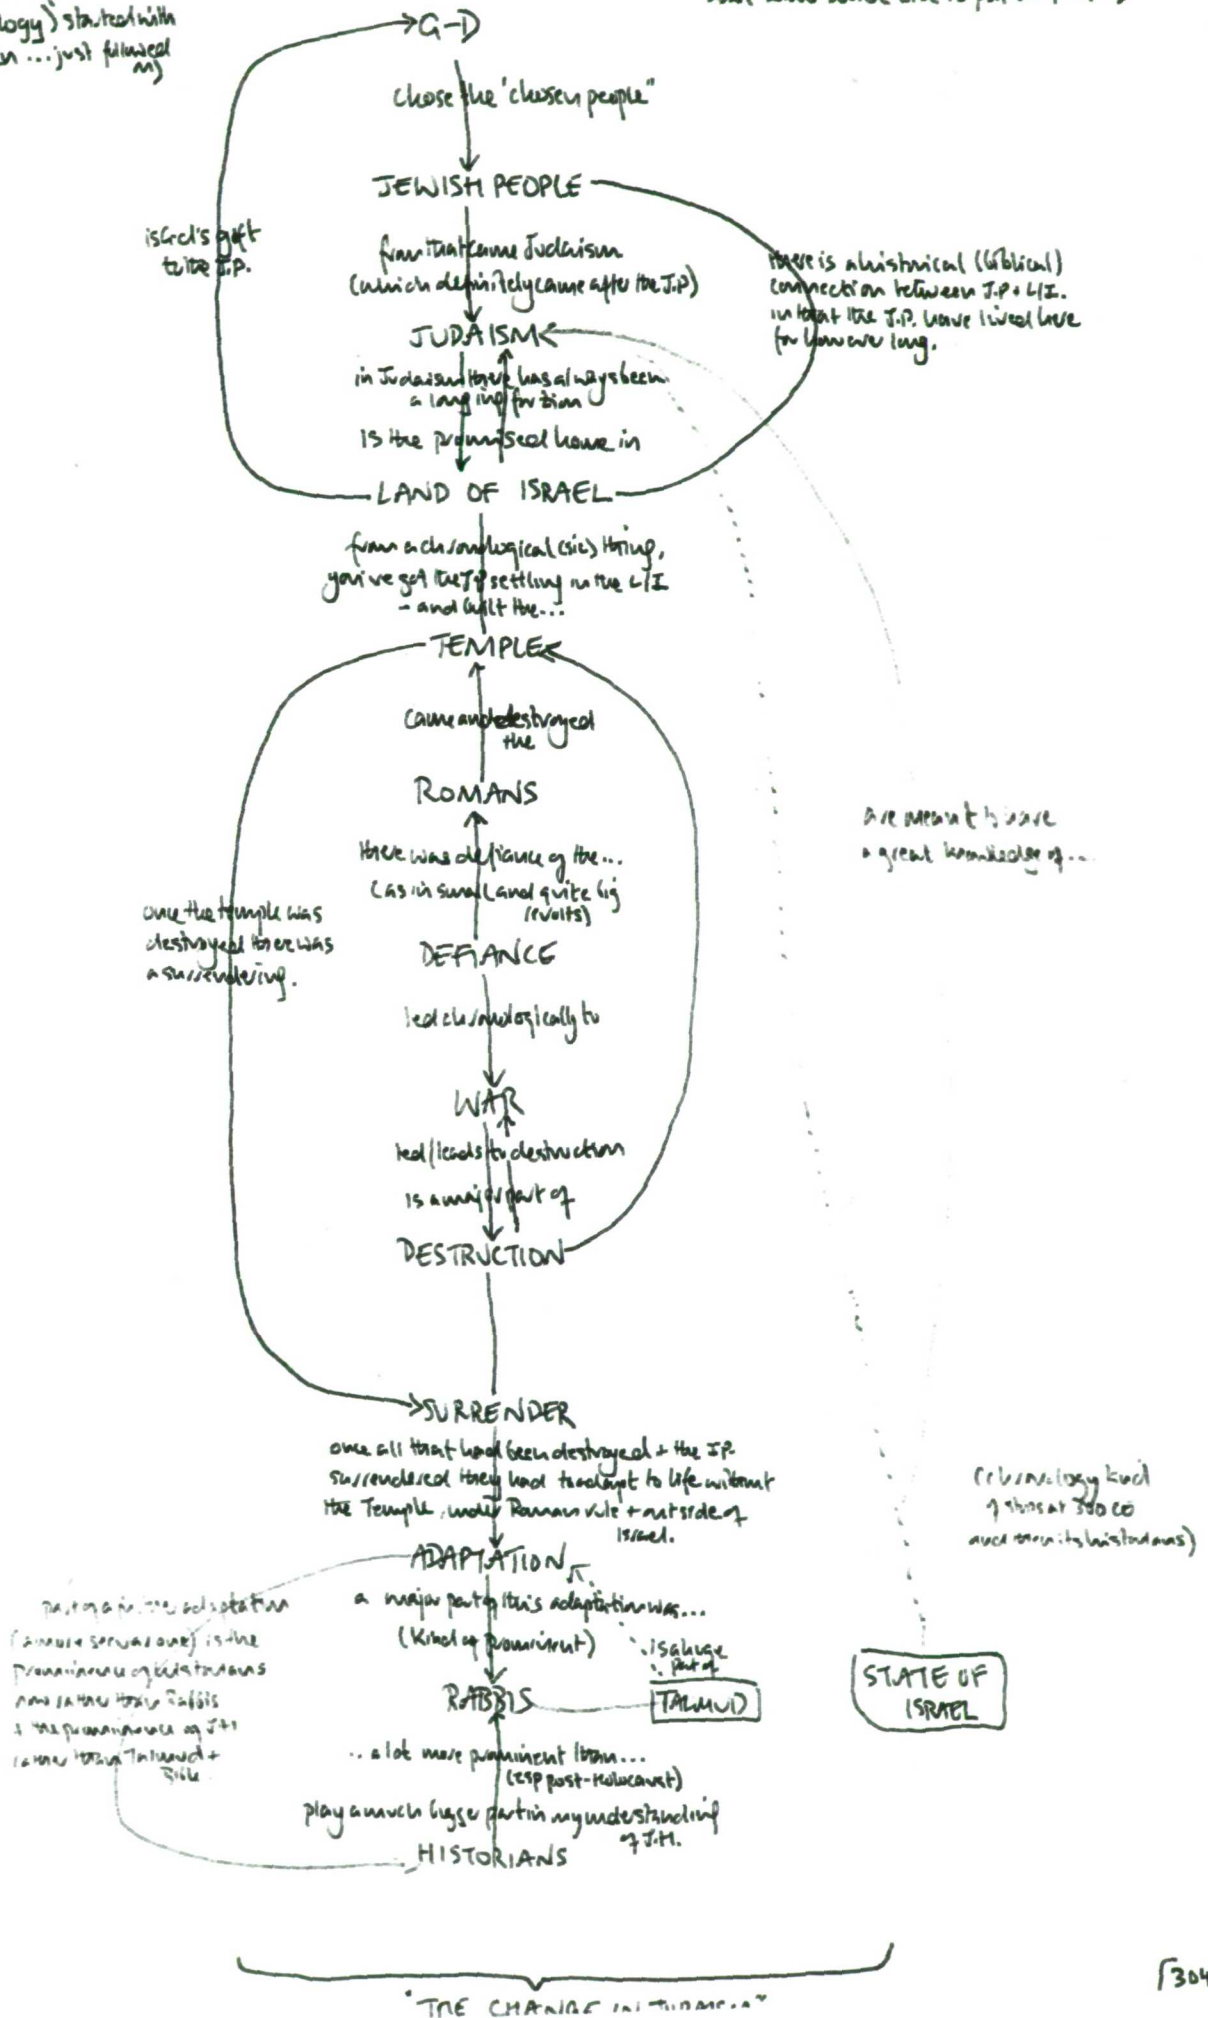 logy) started with
... just followed
G-D
chose the "chosen people"
JEWISH PEOPLE
from that came Judaism
(which definitely came after the J.P)
israel's gift
to the J.P.
there is a historical (biblical)
connection between J.P + L/I.
in that the J.P. have lived here
for however long.
JUDAISM
in Judaism there has always been
a longing for Zion
is the promised home in
LAND OF ISRAEL
from a chronological (sic) thing,
you've got the JP settling in the L/I
- and built the...
TEMPLE
came and destroyed
the
ROMANS
are meant to have
a great knowledge of...
there was defiance of the...
(as in small and quite big
revolts)
once the temple was
destroyed there was
a surrendering.
DEFIANCE
led chronologically to
WAR
led/leads to destruction
is a major part of
DESTRUCTION
SURRENDER
once all that had been destroyed + the JP.
surrendered they had to adapt to life without
the Temple, under Roman rule + outside of
Israel.
(chronology kind
of stops at 300
and then its historians)
ADAPTATION
a major part of this adaptation was...
(kind of prominent)
is a huge
part of
part of a further adaptation
is the
prominence of historians
now rather than Rabbis
+ the prominence of J.H
rather than Talmud +
Bible.
RABBIS
TALMUD
STATE OF
ISRAEL
.. a lot more prominent than...
(esp post-Holocaust)
play a much bigger part in my understanding
of J.H.
HISTORIANS
304
"THE CHANGE IN JUDAISM"